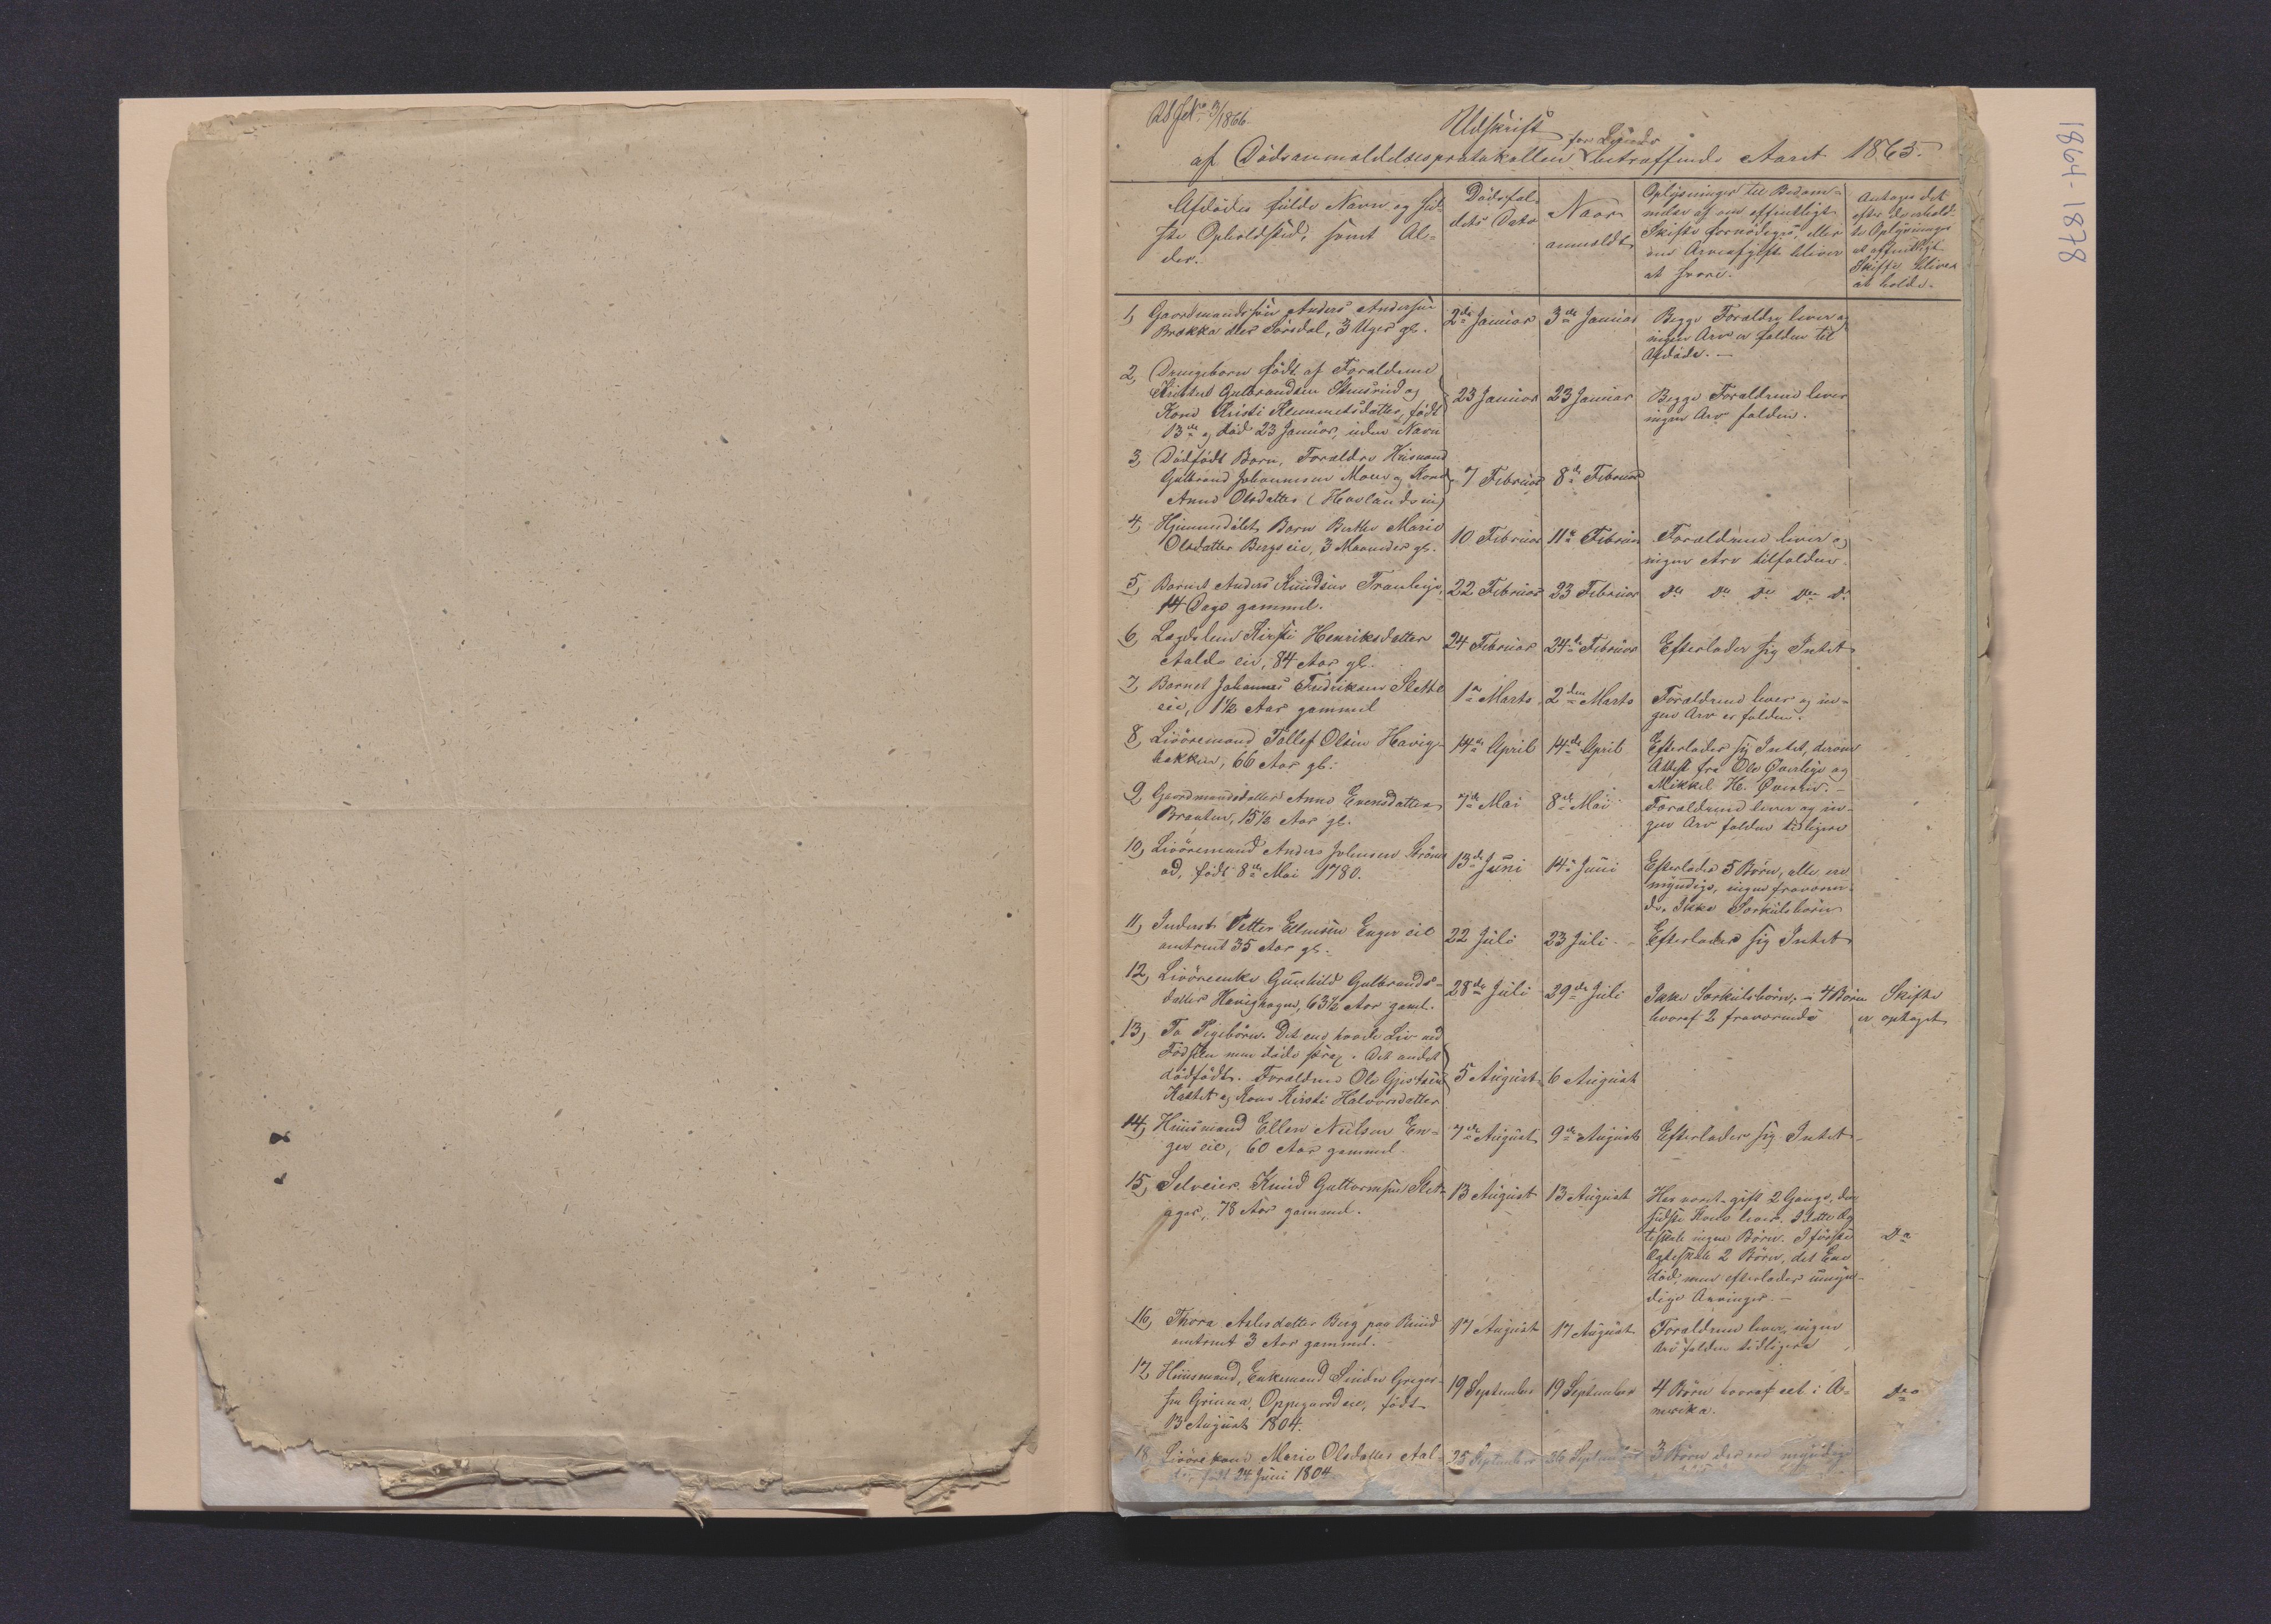 1864-1878
3/1866
Udskrift
af Dödsanmeldelsesprotokollen for betræffende Aaret 1865.
Afdödes fulde Navn og sid-
ste Opholdsted, samt Al-
der.
Dödsfal-
dets Dato
Naar
anmeldt
Oplysninger til Bedöm-
melse af om offentligt
Skifte fornödiges, eller
om Arveafgift bliver
at svare.
Antages det
efter de erhold-
te Oplysninger
at offentligt
Skifte bliver
at holde.
1, Gaardmandssön Anders Andersen
Brække der Sörsdal, 3 Uger gl.
2de Januar
3de Januar
Begge Forældre lever og
ingen Arv er falden til
Afdöde.
2, Drengebarn födt af Forældrene
Gulbrandsen og
Kone Kristi Klemmetsdatter, födt
13de og död 23 Januar, uden Navn
23 Januar
23 Januar
Begge Forældrene lever
ingen Arv falden.
3, Dödfödt Barn, Forældre Husmand
Gulbrand Johannesen Moen og Kone
Anne Olsdatter (Havlandseie)
7 Februar
8de Februar
4, Hjemmedöbt Barn Berthe Marie
Olsdatter Bergs eie, 3 Maaneder gl.
10 Februar
11te Februar
Forældrene lever og
ingen Arv tilfalden.
5, Barnet Anders Knudsen Tranlege,
14 Dage gammel.
22 Februar
23 Februar
Do Do Do Do Do
6, Lægdslem Kirsti Henriksdatter
Aalde eie, 84 Aar gl.
24 Februar
24de Februar
Efterlader sig Intet
7, Barnet Johannes Fredriksen Slette
eie, 1½ Aar gammel
1te Marts
2den Marts
Forældrene lever og in-
gen Arv er falden.
8, Livöremand Tollef Olsen Havige-
bakken, 66 Aar gl.
14de April
14de April
Efterlader sig Intet, derom
Attest fra Ole Överlie og
Mikkel H. Överlie.
9, Gaardmandsdatter Anne Evensdatter
Braaten, 15½ Aar gl.
7de Mai
8de Mai
Forældrene lever og in-
gen Arv falden tidligere
10, Livöremand Anders Johnsen Ström-
ad, födt 8de Mai 1780.
13de Juni
14de Juni
Efterlader 5 Börn, alle ere
myndige, ingen fraværen-
de. Ikke Særkulsbörn
11, Inderst Petter Ellensen Enger eie
omtrent 35 Aar gl.
22 Juli
23 Juli
Efterlader sig Intet
12, Livöreenke Gunhild Gulbrands-
datter Havighagen, 63½ Aar gaml.
28de Juli
29de Juli
Ikke Særkulsbörn. 4 Börn
hvoraf 2 fraværende
Skifte
er optaget
13, To Pigebörn. Det ene havde Liv ved
Födslen men döde strax. Det andet
dödfödt. Forældrene Ole Gjertsen
Hattet og Kone Kirsti Halvorsdatter
5 August
6 August
14, Huusmand Ellen Neilsen En-
ger eie, 60 Aar gammel
7de August
9de August
Efterlader sig Intet
15, Selveier Knud Guttormsen Slet-
ager, 78 Aar gammel.
13 August
13 August
Har været gift 2 Gange, den
sidste Kone lever. I dette Æg-
teskab ingen Börn. I förste
Ægteskab 2 Börn, det Ene
död, men efterlader umyn-
dige Arvinger.
Do
16, Thora Aslesdatter Berg paa Ruud
omtrent 3 Aar gammel.
17 August
17 August
Forældrene lever, ingen
Arv falden tidligere
17, Huusmand, Enkemand Sinder Greger-
sen Grinna, Oppegaard eie, födt
13 August 1804.
19 September
19 September
4 Börn hvoraf eet i A-
merika.
Do
18, Livörekone Marie Olsdatter Aal-
födt 24 Juni 1804
25 September
26 September
3 Börn der ere myndige